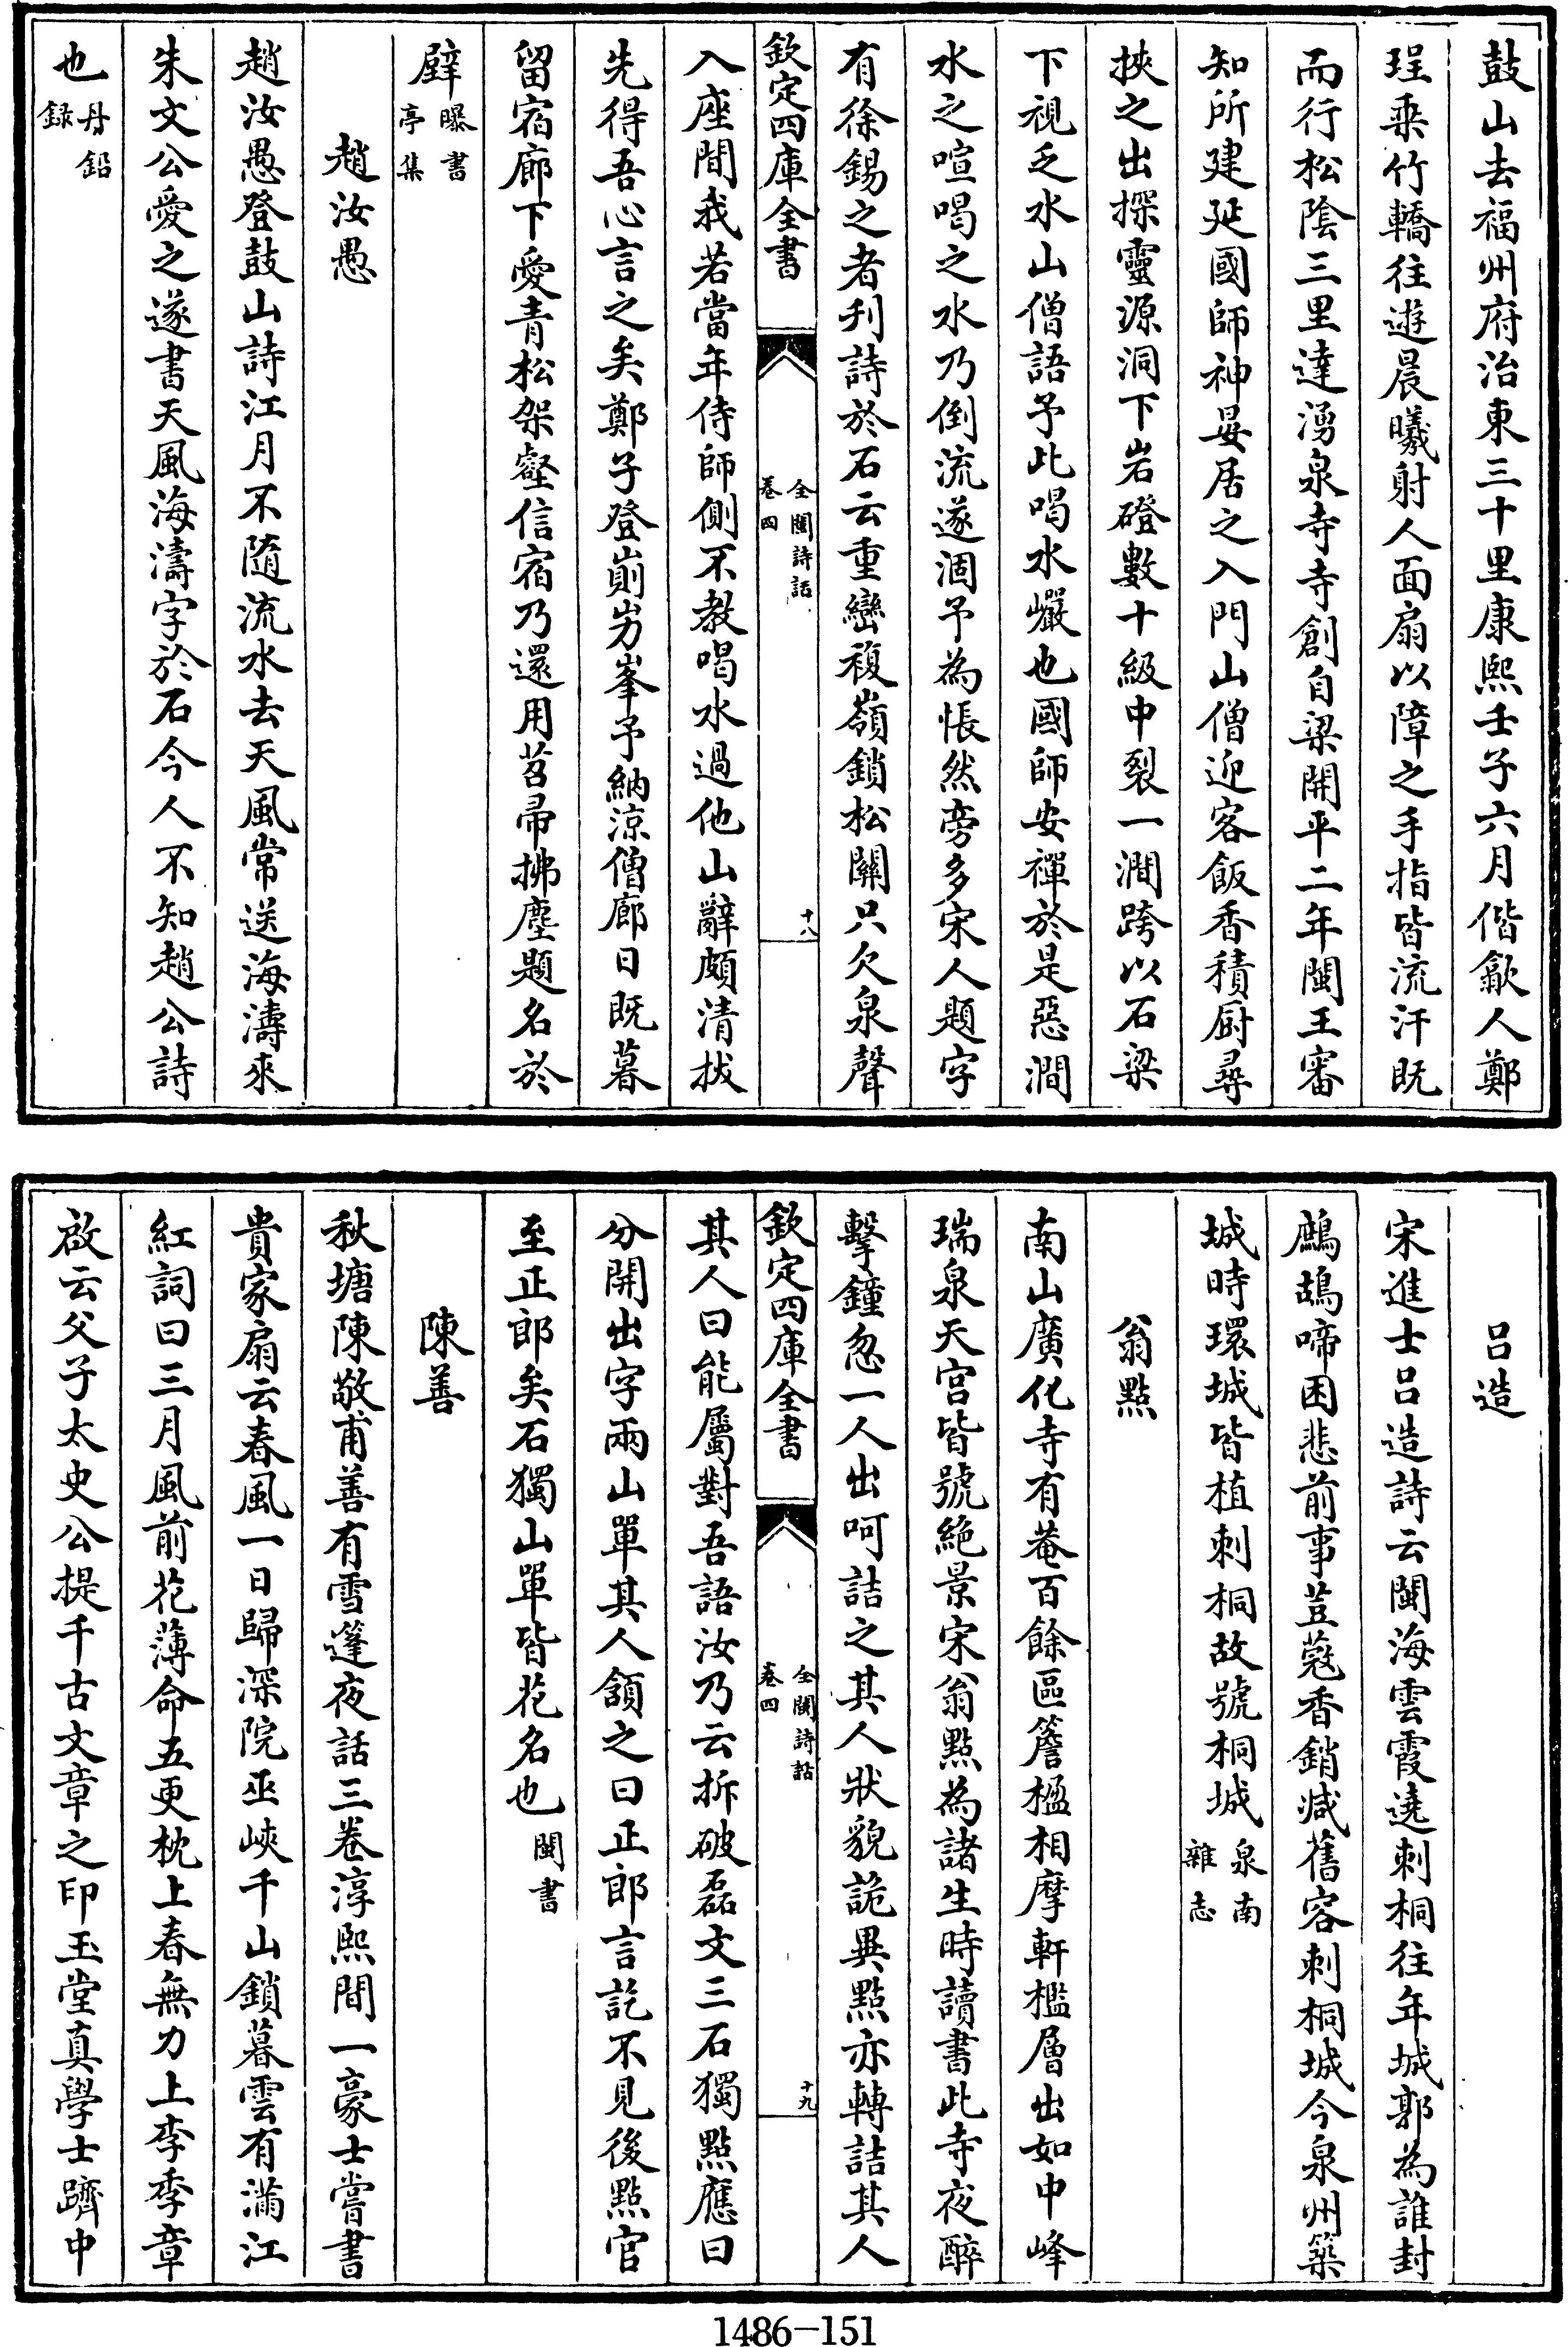 鼓山去福州府治東三十里康熙壬子六月偕歙人鄭
珵乘竹轎往遊晨曦射人面扇以障之手指皆流汗既
而行松陰三里達湧泉寺寺創自梁開平二年閩王審
知所建延國師神晏居之入門山僧迎客飯香積厨尋
挾之出探靈源洞下岩磴數十級中裂一澗跨以石梁
下視乏水山僧語予此喝水巖也國師安禪於是惡澗
水之喧喝之水乃倒流遂涸予為悵然旁多宋人題字
有徐錫之者刋詩於石云重巒複嶺鎖松關只欠泉聲
欽定四庫全書
全閩詩話
卷四
十八
入座間我若當年侍師側不教喝水過他山辭頗清拔
先得吾心言之矣鄭子登崱屴峯予納涼僧廊日既暮
留宿廊下愛青松架壑信宿乃還用苕帚拂塵題名於
壁曝書
亭集
趙汝愚
趙汝愚登鼓山詩江月不隨流水去天風常送海濤來
朱文公愛之遂書天風海濤字於石今人不知趙公詩
也丹鉛
録
吕造
宋進士吕造詩云閩海雲霞遶刺桐往年城郭為誰封
鷓鴣啼困悲前事荳蔻香銷減舊容刺桐城今泉州築
城時環城皆植刺桐故號桐城泉南
雜志
翁點
南山廣化寺有菴百餘區簷楹相摩軒檻層出如中峰
瑞泉天宫皆號絶景宋翁點為諸生時讀書此寺夜醉
擊鐘忽一人出呵詰之其人狀貌詭異點亦轉詰其人
欽定四庫全書
全閩詩話
卷四
十九
其人曰能屬對吾語汝乃云拆破磊文三石獨點應曰
分開出字兩山單其人頷之曰正郎言訖不見後點官
至正郎矣石獨山單皆花名也閩書
陳善
秋塘陳敬甫善有雪篷夜話三卷淳熙間一豪士嘗書
貴家扇云春風一日歸深院巫峽千山鎖暮雲有滿江
紅詞曰三月風前花薄命五更枕上春無力上李季章
啟云父子太史公提千古文章之印玉堂真學士躋中
1486-151